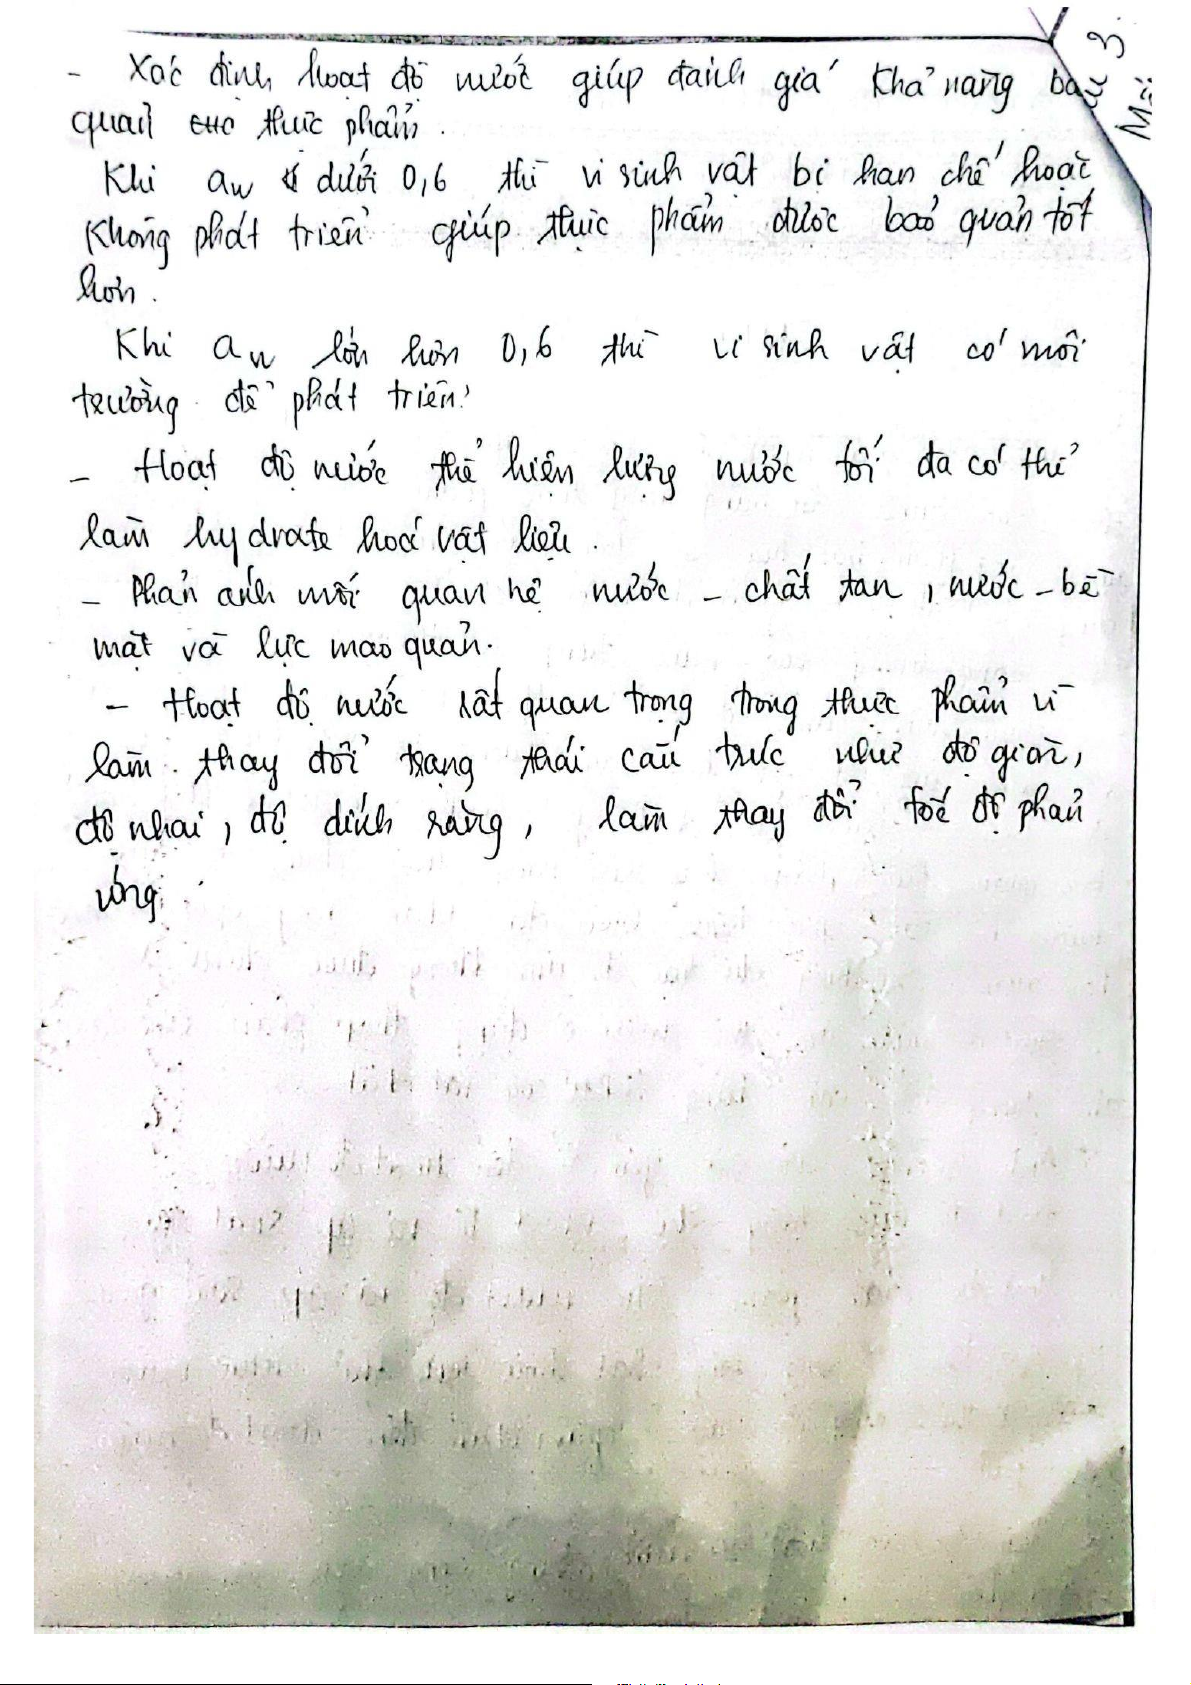 - Xác định hoạt độ nước giúp đánh giá khả năng bảo
quản thực phẩm.
Khi aw dưới 0,6 thì vi sinh vật bị hạn chế hoặc
không phát triển giúp thực phẩm được bảo quản tốt
hơn.
Khi aw lớn hơn 0,6 thì vi sinh vật có môi
trường để phát triển.
- Hoạt độ nước thể hiện lượng nước tối đa có thể
làm hydrate hoá vật liệu.
- Phản ánh mối quan hệ nước - chất tan, nước - bề
mặt và lực mao quản.
- Hoạt độ nước rất quan trọng trong thực phẩm vì
làm thay đổi trạng thái cấu trúc như độ giòn,
độ nhai, độ dính răng, làm thay đổi tốc độ phản
ứng.